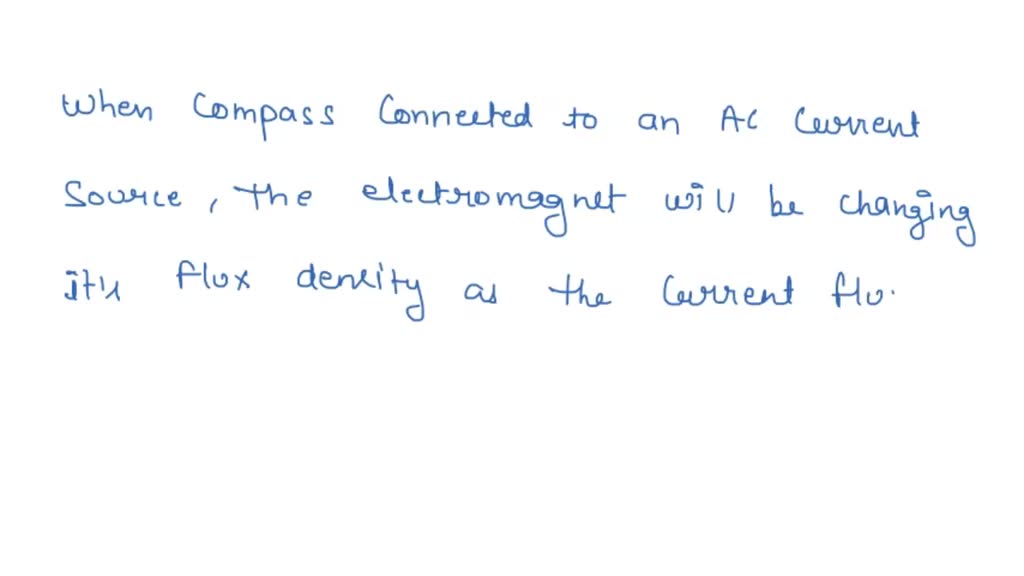 When Compass Connected to an AC Current
Source, the electromagnet will be changing
its flux density as the Current flo